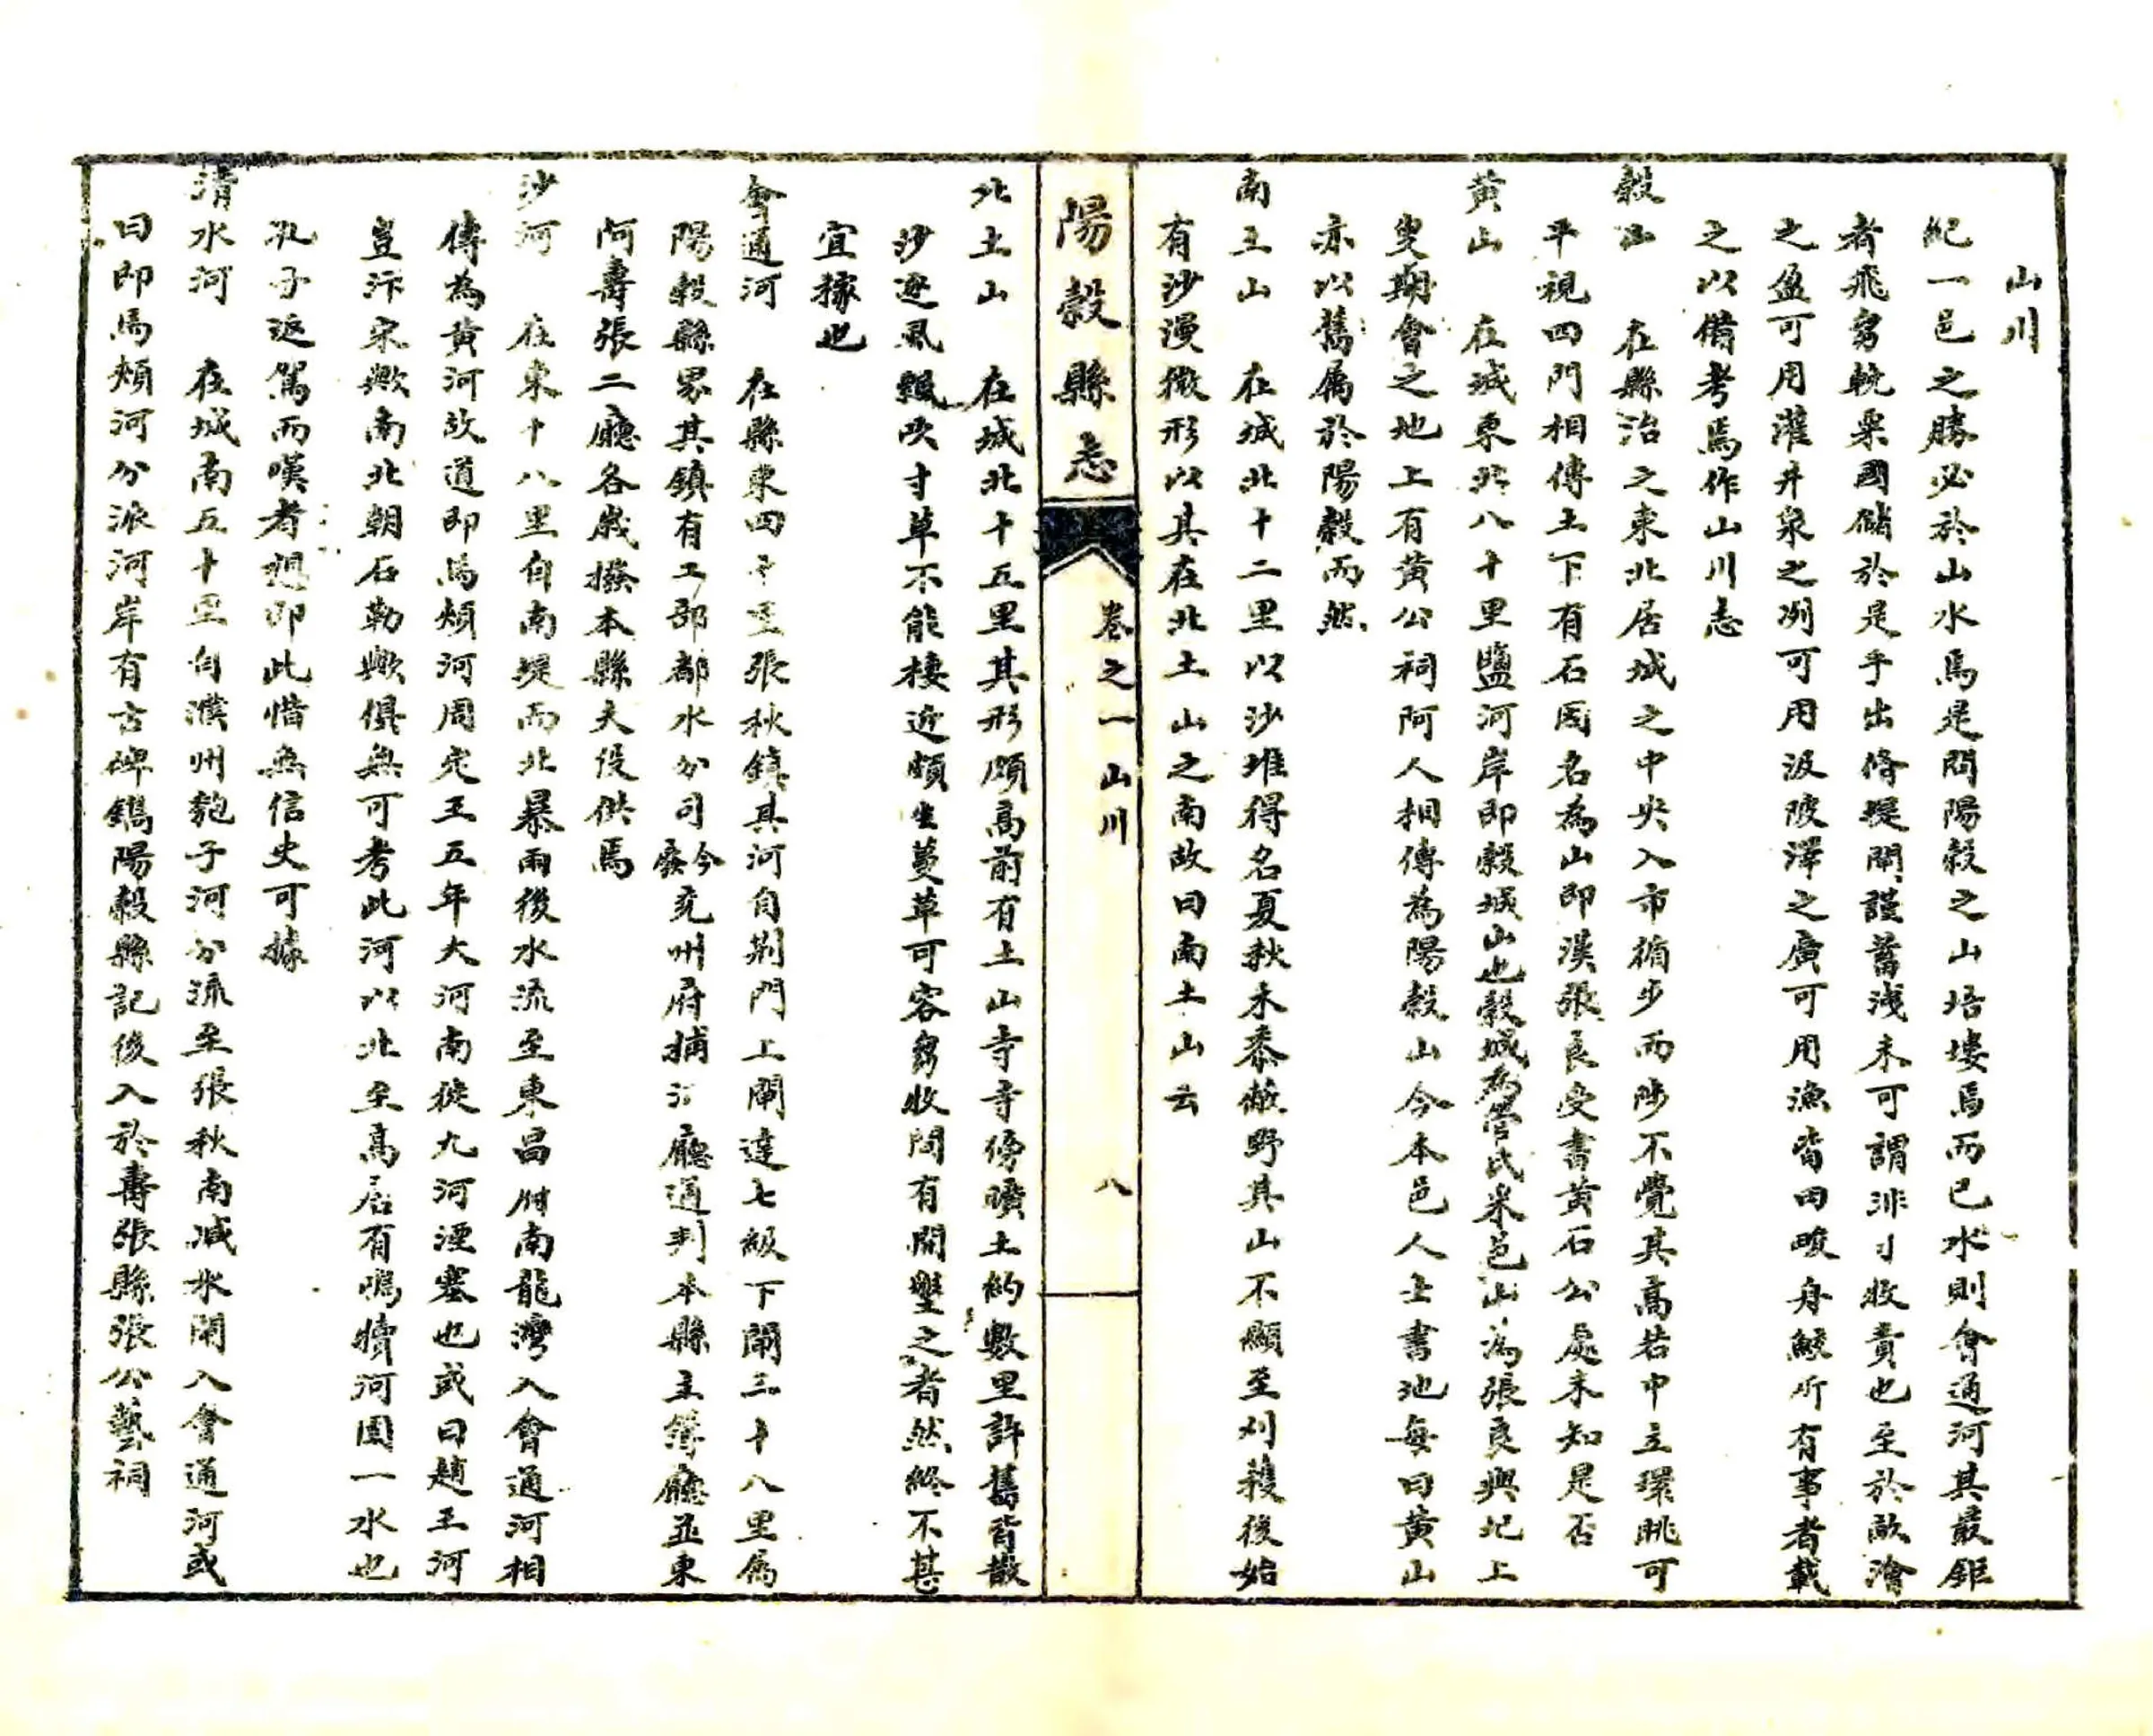 山川
紀一邑之勝必於山水焉是問陽穀之山培塿焉而已水則會通河其最鉅
者飛芻輓粟國儲於是乎出脩堤閘謹蓄洩未可謂非司牧責也至於畎澮
之盈可用灌井泉之冽可用汲陂澤之廣可用漁皆田畯舟鮫所有事者載
之以備考焉作山川志
穀山 在縣治之東北居城之中央入市循步而陟不覺其高若中立環眺可
平視四門相傳土下有石因名為山即漢張良受書黃石公處未知是否
黃山 在城東北八十里鹽河岸即穀城山也穀城為管氏采邑山為張良與圯上
叟期會之地上有黃公祠阿人相傳為陽穀山今本邑人士書池每曰黃山
亦以舊屬於陽穀而然
南土山 在城北十二里以沙堆得名夏秋禾黍蔽野其山不顯至刈穫後始
有沙漫微形以其在北土山之南故曰南土山云
陽穀縣志
卷之一 山川
八
北土山 在城北十五里其形頗高前有土山寺寺傍曠土約數里許舊皆散
沙逐風輒吹寸草不能棲近頗生蔓草可容芻牧間有開墾之者然終不甚
宜稼也
會通河 在縣東四十里張秋鎮其河自荊門上閘達七級下閘三十八里屬
陽穀縣界其鎮有工部都水分司今廢兗州府捕河廳通判本縣主簿廳並東
阿壽張二廳各歲撥本縣夫役供焉
沙河 在東十八里自南堤而北暴雨後水流至東昌府南龍灣入會通河相
傳為黃河故道即馬頰河周定王五年大河南徙九河湮塞也或曰趙王河
豈汴宋歟南北朝石勒歟俱無可考此河以北至高居有鳴犢河園一水也
孔子返駕而嘆者想即此惜無信史可據
清水河 在城南五十里自濮州瓠子河分流至張秋南減水閘入會通河或
曰即馬頰河分派河岸有古碑鐫陽穀縣記後入於壽張縣張公藝祠